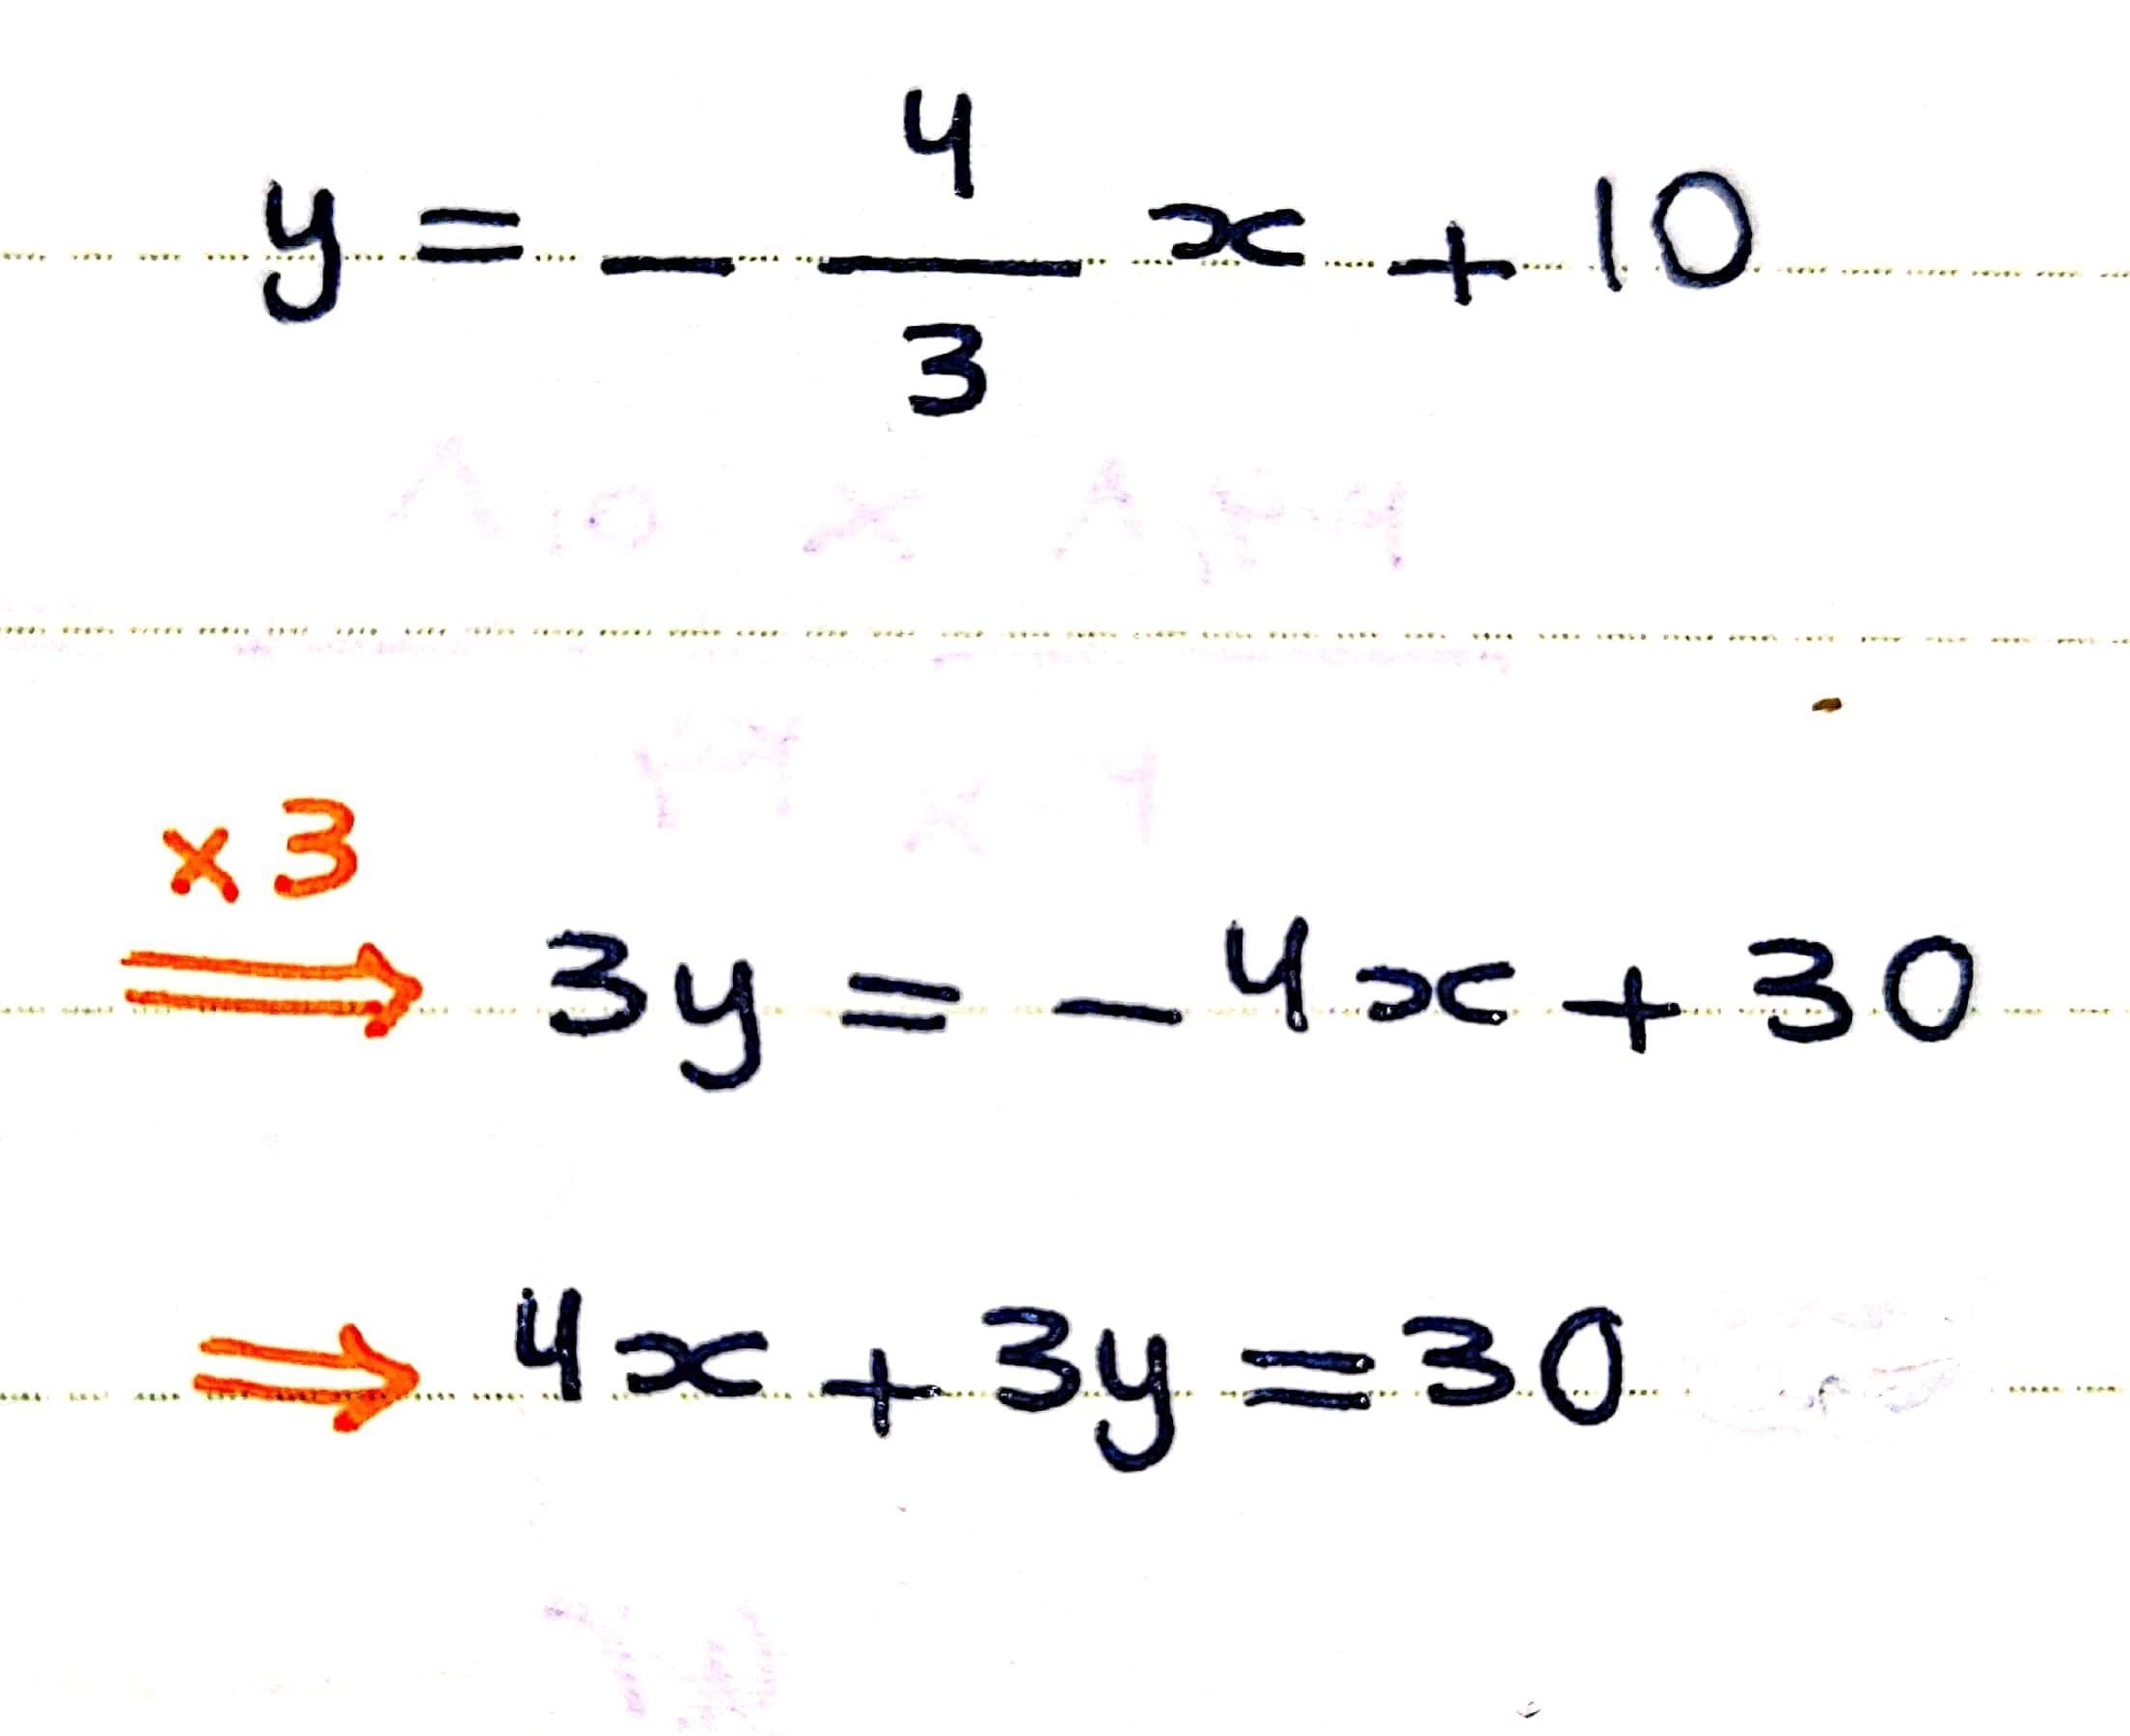 y = - 4/3 x + 10
x 3
⇒ 3y = - 4x + 30
⇒ 4x + 3y = 30